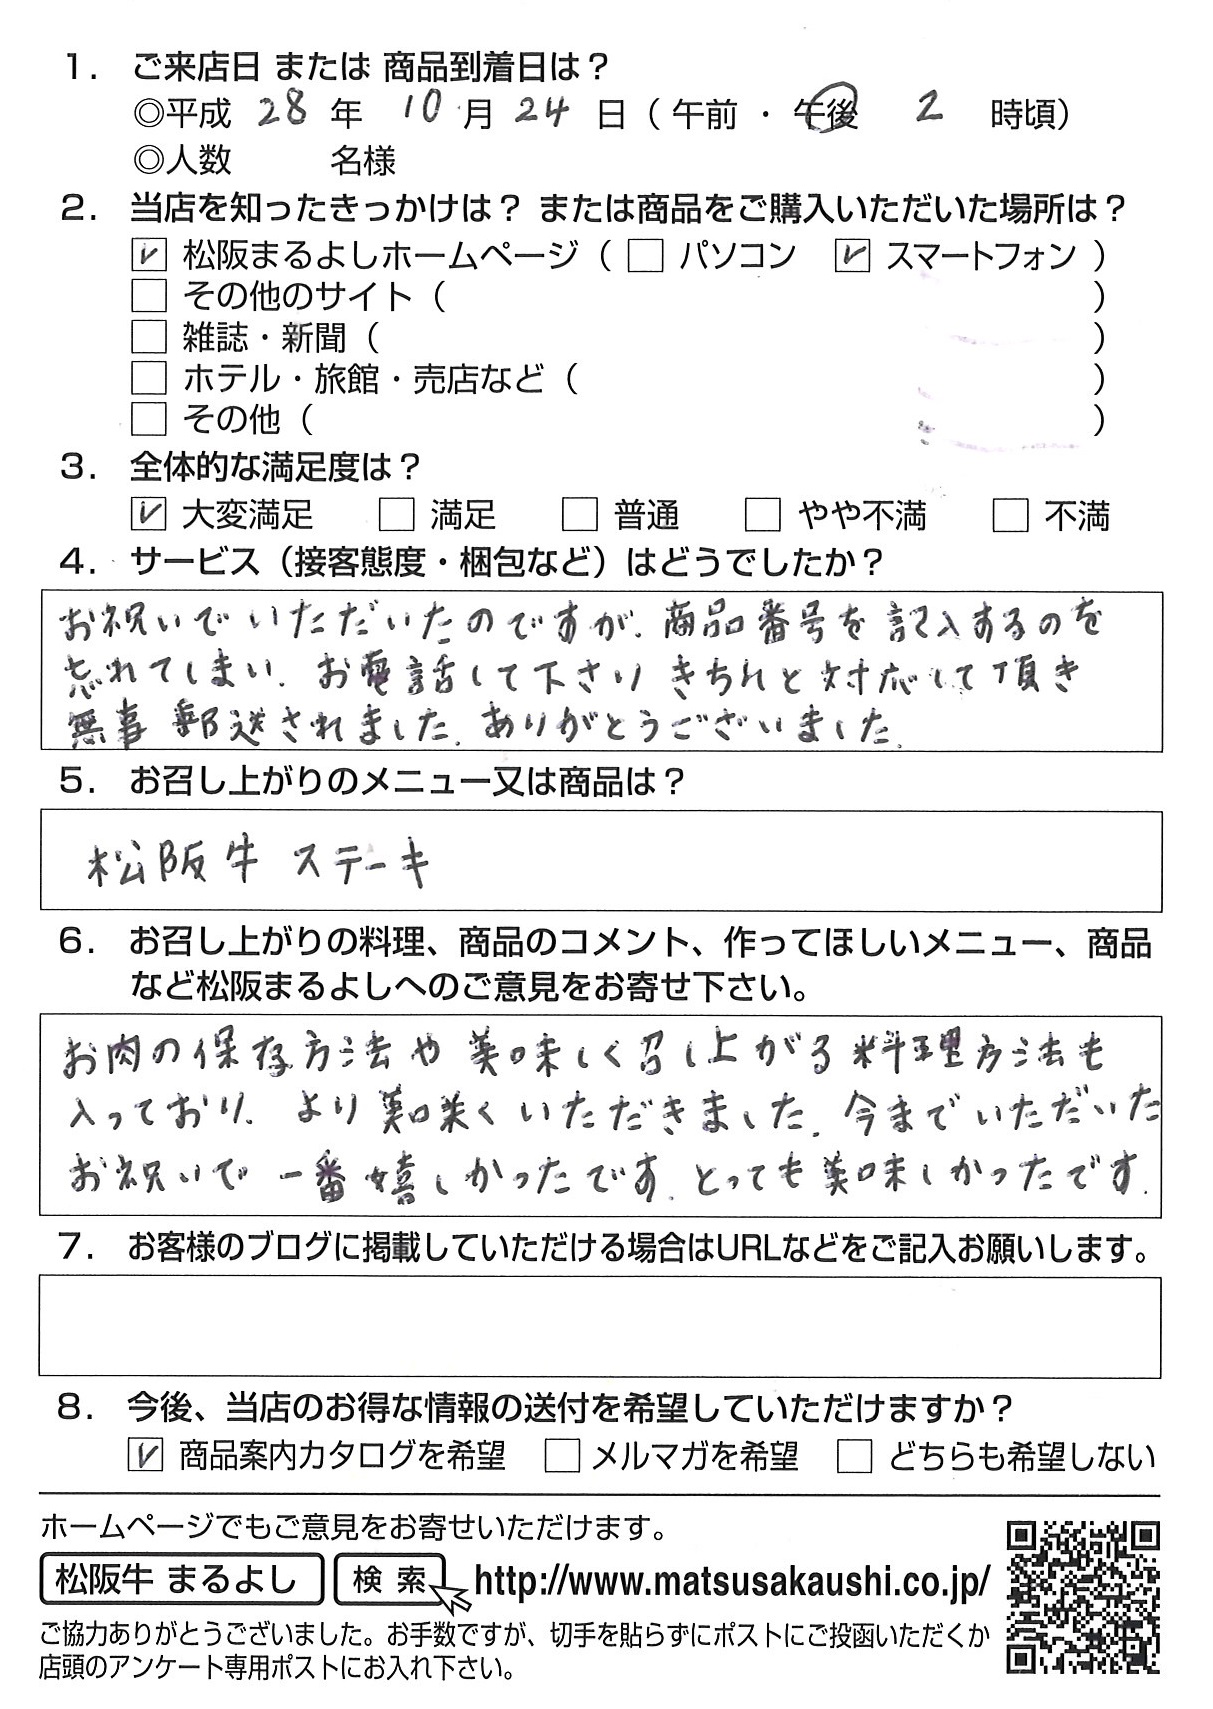 1. ご来店日 または 商品到着日は？
◎平成 28 年 10 月 24 日（ 午前 ・ 午後 2 時頃）
◎人数 名様
2. 当店を知ったきっかけは？ または商品をご購入いただいた場所は？
☑ 松阪まるよしホームページ（ □ パソコン ☑ スマートフォン ）
□ その他のサイト（ ）
□ 雑誌・新聞（ ）
□ ホテル・旅館・売店など（ ）
□ その他（ ）
3. 全体的な満足度は？
☑ 大変満足 □ 満足 □ 普通 □ やや不満 □ 不満
4. サービス（接客態度・梱包など）はどうでしたか？
お祝いでいただいたのですが、商品番号を記入するのを
忘れてしまい、お電話して下さり きちんと対応して頂き
無事 郵送されました。ありがとうございました。
5. お召し上がりのメニュー又は商品は？
松阪牛 ステーキ
6. お召し上がりの料理、商品のコメント、作ってほしいメニュー、商品
など松阪まるよしへのご意見をお寄せ下さい。
お肉の保存方法や 美味しく召し上がる料理方法も
入っており、より美味くいただきました。今までいただいた
お祝いで 一番嬉しかったです。とっても美味しかったです。
7. お客様のブログに掲載していただける場合はURLなどをご記入お願いします。
8. 今後、当店のお得な情報の送付を希望していただけますか？
☑ 商品案内カタログを希望 □ メルマガを希望 □ どちらも希望しない
ホームページでもご意見をお寄せいただけます。
松阪牛 まるよし 検索 http://www.matsusakaushi.co.jp/
ご協力ありがとうございました。お手数ですが、切手を貼らずにポストにご投函いただくか
店頭のアンケート専用ポストにお入れ下さい。